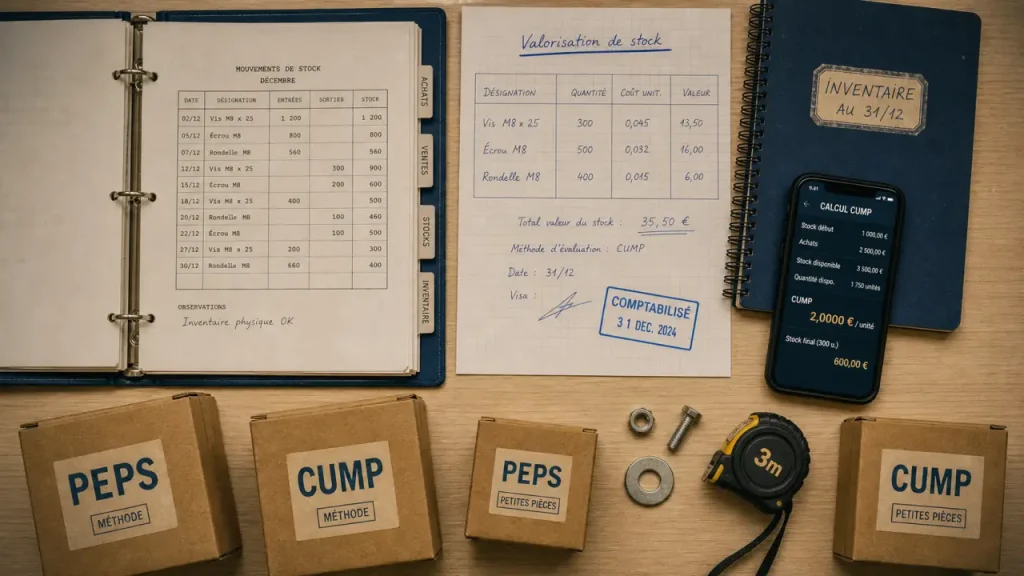 MOUVEMENTS DE STOCK
DÉCEMBRE
DATE DÉSIGNATION ENTRÉES SORTIES STOCK
02/12 Vis M8 x 25 1 200 1 200
05/12 Écrou M8 800 800
07/12 Rondelle M8 560 560
12/12 Vis M8 x 25 300 900
15/12 Écrou M8 200 600
18/12 Vis M8 x 25 400 500
20/12 Rondelle M8 100 460
22/12 Écrou M8 100 500
27/12 Vis M8 x 25 200 300
30/12 Rondelle M8 660 400
OBSERVATIONS
Inventaire physique OK
ACHATS
VENTES
STOCKS
INVENTAIRE
Valorisation de stock
DÉSIGNATION QUANTITÉ COÛT UNIT. VALEUR
Vis M8 x 25 300 0,045 13,50
Écrou M8 500 0,032 16,00
Rondelle M8 400 0,015 6,00
Total valeur du stock : 35,50 €
Méthode d'évaluation : CUMP
Date : 31/12
Visa :
COMPTABILISÉ
31 DEC. 2024
INVENTAIRE
AU 31/12
9:41
CALCUL CUMP
Stock début 1 000,00 €
Achats 2 500,00 €
Stock disponible 3 500,00 €
Quantité dispo. 1 750 unités
CUMP
2,0000 € / unité
Stock final (300 u.)
600,00 €
PEPS
MÉTHODE
CUMP
MÉTHODE
PEPS
PETITES PIÈCES
3m
CUMP
PETITES PIÈCES